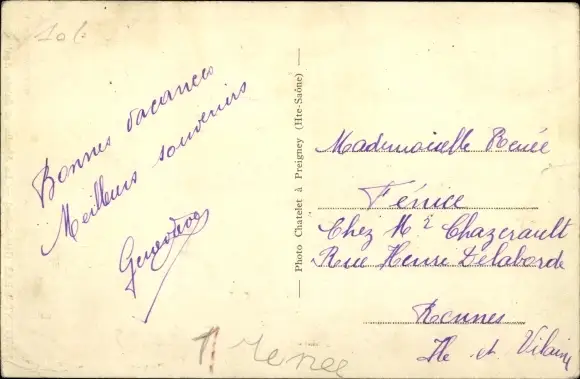 Bonnes vacances
Meilleurs souvenirs
Geneviève
Photo Chatelet à Preigney (Hte-Saône)
Mademoiselle Renée
Fénice
Chez Mr Chazerault
Rue Henri Delaborde
Rennes
Ile et Vilaine